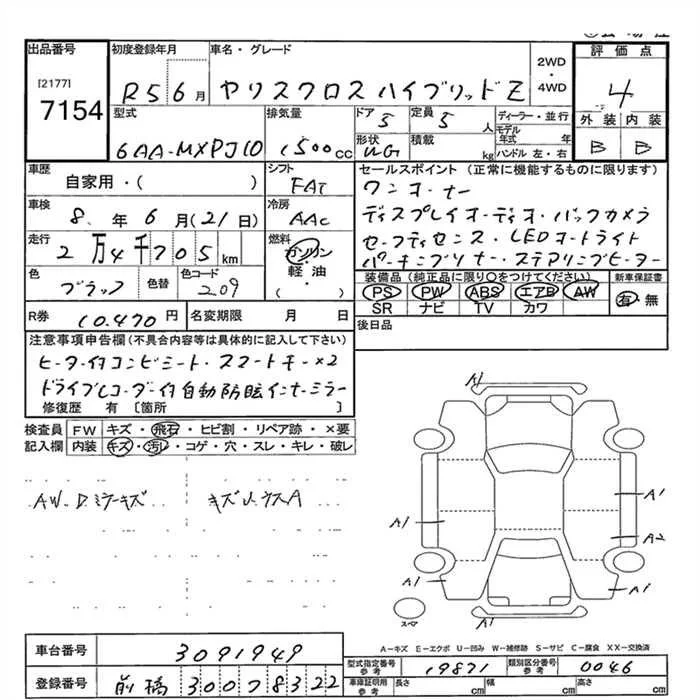 出品番号 初度登録年月 車名・グレード 2WD ・ 4WD 評価点
[2177]
7154 R5 6月 ヤリスクロス ハイブリッド Z 4
型式 排気量 ドア 定員 ディーラー・並行 外装 内装
6AA-MXPJ10 1500cc 5 5人 モデル年式 年 B B
形状 積載 kg ハンドル 左・右
WG
車歴 シフト セールスポイント(正常に機能するものに限ります)
自家用・( ) FAT ワンオーナー
車検 冷房 ディスプレイオーディオ・バックカメラ
8年6月(21日) AAC セーフティセンス・LEDオートライト
走行 燃料 パーキングブレーキ・ステアリングヒーター
2万4千705km ガソリン 軽・油 ( )
装備品(純正品に限り○をつけてください) 新車保証書
色 色替 色コード PS PW ABS エアB AW 有 無
ブラック 209 SR ナビ TV カワ
R券 10.470円 名変期限 月 日 後日品
注意事項申告欄(不具合内容等は具体的に記入して下さい)
ヒーター付コンビシート・スマートキー×2
ドライブレコーダー付自動防眩インナーミラー
修復歴 有〔箇所 〕
検査員 FW キズ・飛石・ヒビ割・リペア跡・×要
記入欄 内装 キズ・汚レ・コゲ・穴・スレ・キレ・破レ
AW・D.ミラーキズ キズ
A1
A1
A1 A2
A1 A1
スペア A1
A-キズ E-エクボ U-凹み W-補修跡 S-サビ C-腐食 XX-交換済
車台番号 3091949
型式指定番号 参考 19871 類別区分番号 参考 0046
登録番号 前橋 300 ひ 8322
車庫証明用 参考 長さ cm 幅 cm 高さ cm